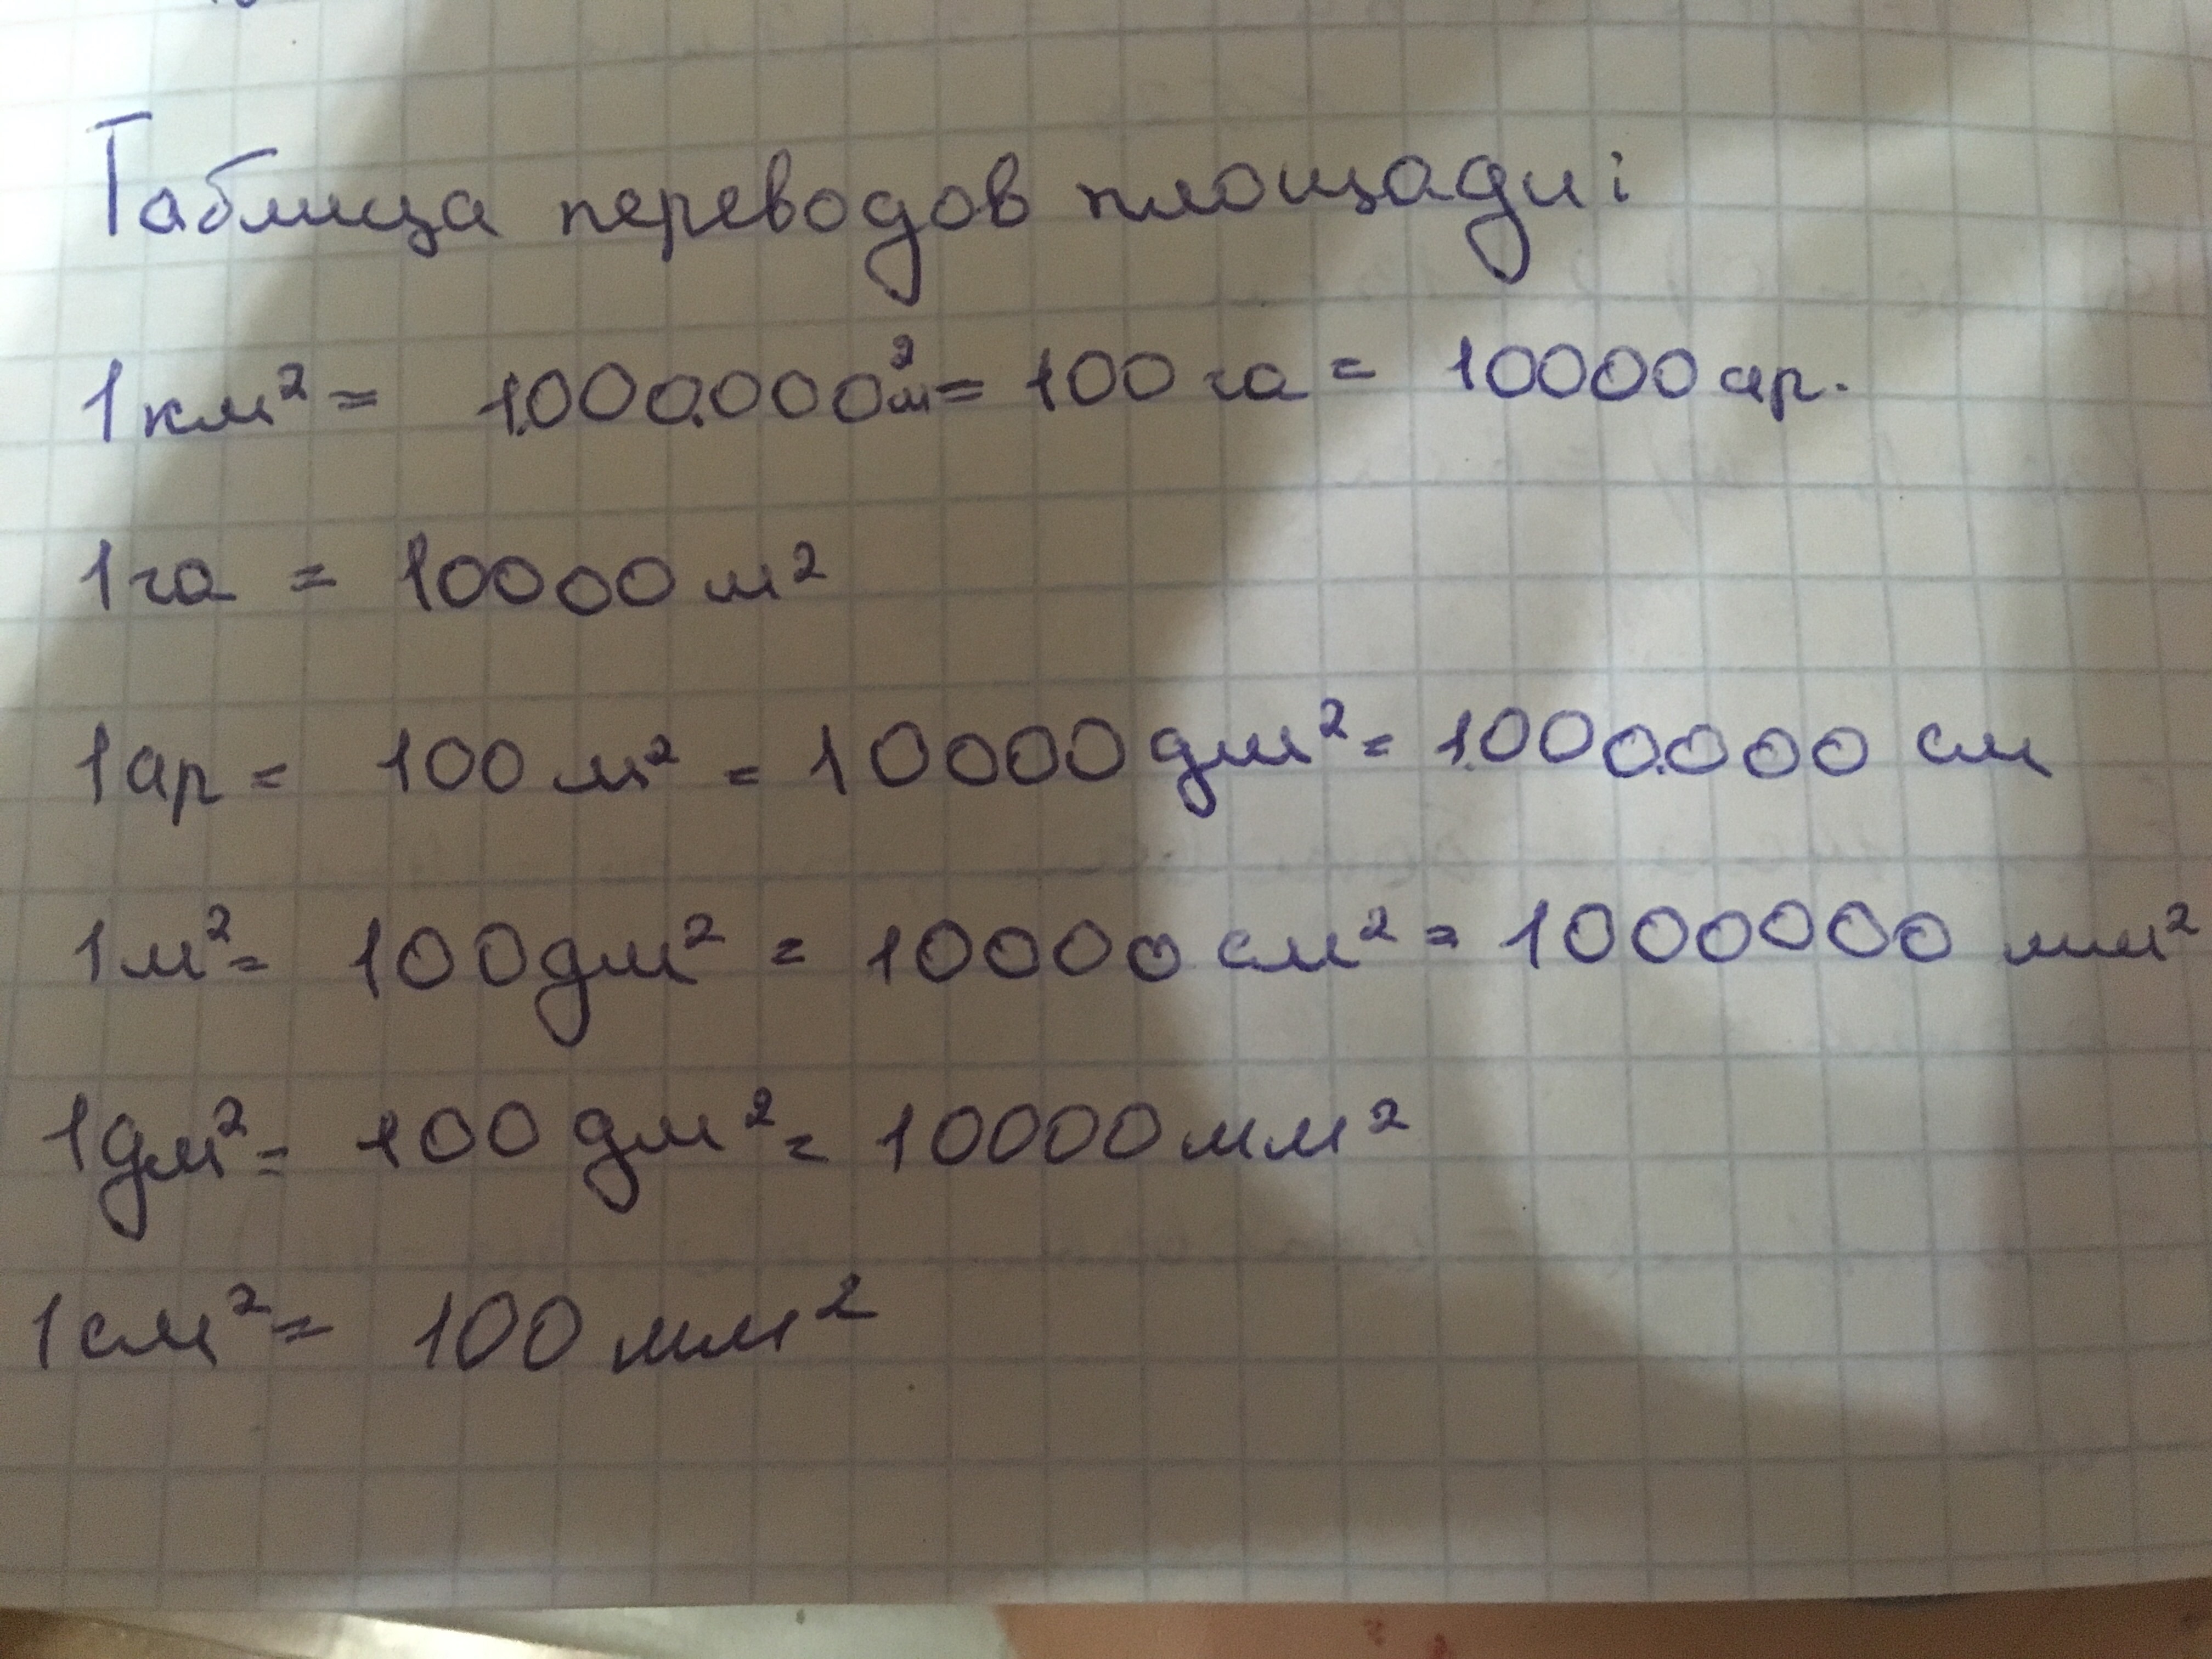 Таблица переводов площади:
1 км² = 1.000.000 м² = 100 га = 10000 ар.
1 га = 10000 м²
1 ар = 100 м² = 10000 дм² = 1.000.000 см
1 м² = 100 дм² = 10000 см² = 1000000 мм²
1 дм² = 100 дм² = 10000 мм²
1 см² = 100 мм²